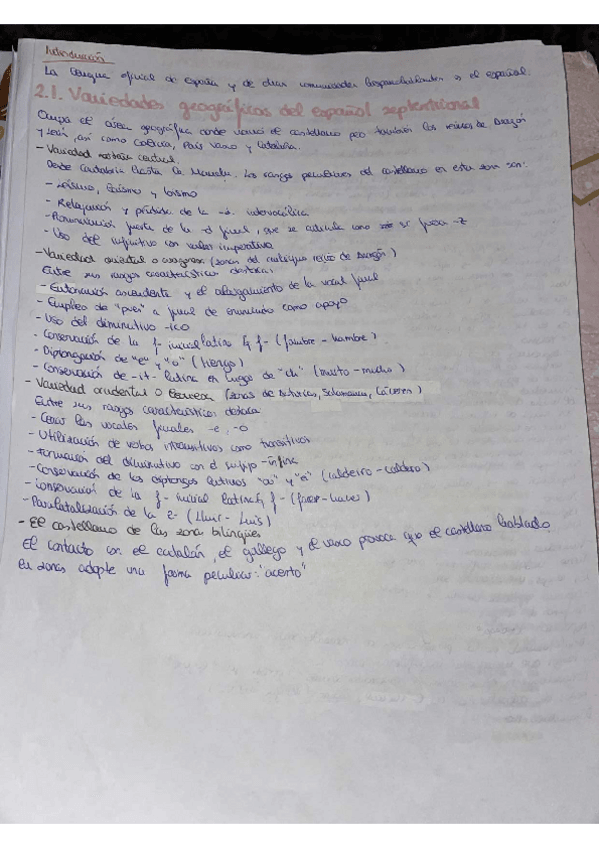 Introducción
La lengua oficial de España y de otras comunidades hispanohablantes es el español.
2.1. Variedades geográficas del español septentrional
Ocupa el área geográfica donde nació el castellano pero también los reinos de Aragón
y León, así como Galicia, País Vasco y Cataluña.
- Variedad central.
Desde Cantabria hasta La Mancha. Los rasgos peculiares del castellano en esta zona son:
- Leísmo, laísmo y loísmo
- Relajación y pérdida de la -d- intervocálica
- Pronunciación fuerte de la -d final, que se articula como si fuera -z
- Uso del infinitivo con valor imperativo
- Variedad oriental o aragonesa (zonas del antiguo reino de Aragón)
Entre sus rasgos característicos destacan:
- Entonación ascendente y el alargamiento de la vocal final
- Empleo de "pues" a final de enunciado como apoyo
- Uso del diminutivo -ico
- Conservación de la f- inicial latina f- (fambre - hambre)
- Diptongación de "e" y "o" (tiengo)
- Conservación de -it- latina en lugar de "ch" (muito - mucho)
- Variedad occidental o leonesa (zonas de Asturias, Salamanca, Cáceres)
Entre sus rasgos característicos destaca
- Cerrar las vocales finales -e, -o
- Utilización de verbos intransitivos como transitivos
- Formación del diminutivo con el sufijo -ín
- Conservación de los diptongos latinos "ou" y "ei" (caldeiro - caldero)
- Conservación de la f- inicial latina f- (facer - hacer)
- Palatalización de la l- (Lluis - Luis)
- El castellano de las zona bilingües
El contacto con el catalán, el gallego y el vasco provoca que el castellano hablado
en zonas adopte una forma peculiar: "acento"